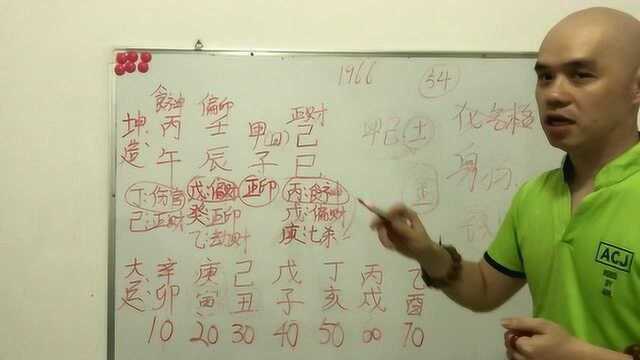 1966 54
食神 偏印 正财
坤 丙 壬 甲(日) 己 甲己土
造: 午 辰 子 巳 金
丁:伤官 戊:偏财 正印 丙:食神
己:正财 癸 正印 戊:偏财
乙:劫财 庚:七杀
化 格
身份
大 辛 庚 己 戊 丁 丙 乙
运: 卯 寅 丑 子 亥 戌 酉
10 20 30 40 50 60 70
ACJ